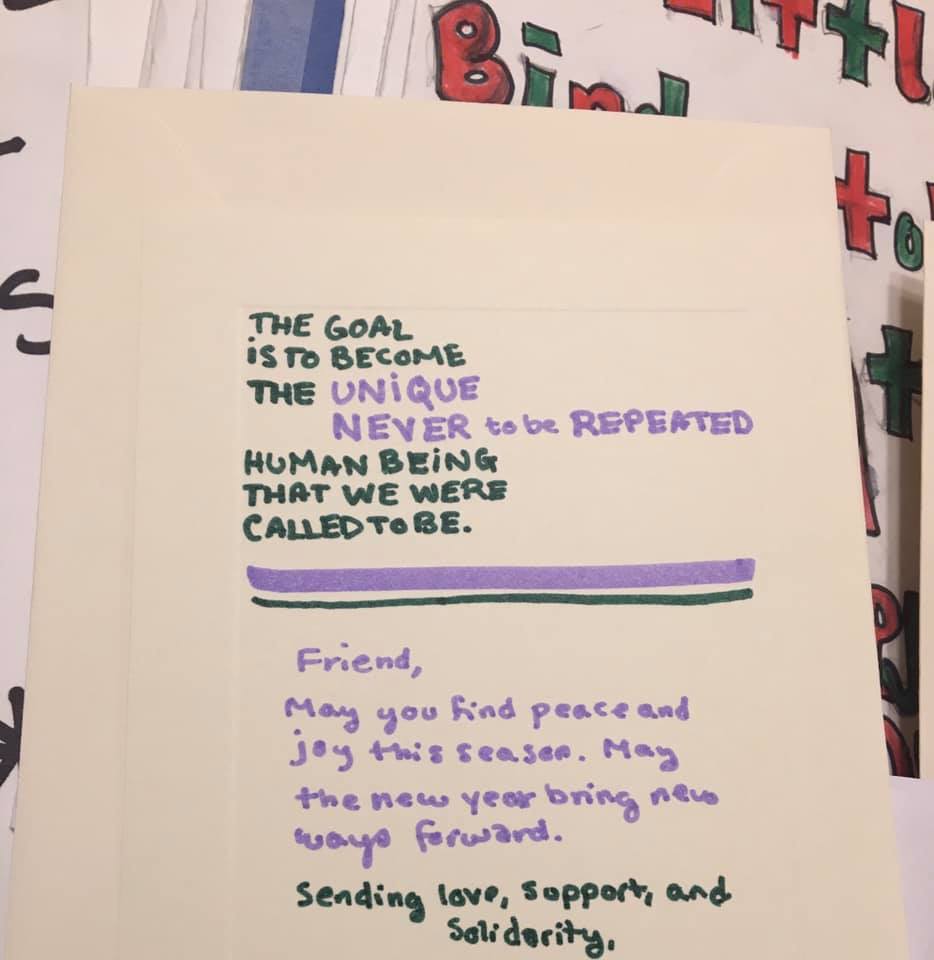 Little
Bird
to
THE GOAL
is TO BECOME
THE UNiQUE
NEVER to be REPEATED
HUMAN BEiNG
THAT WE WERE
CALLED TO BE.
Friend,
May you find peace and
joy this season. May
the new year bring new
ways forward.
Sending love, support, and
Solidarity,